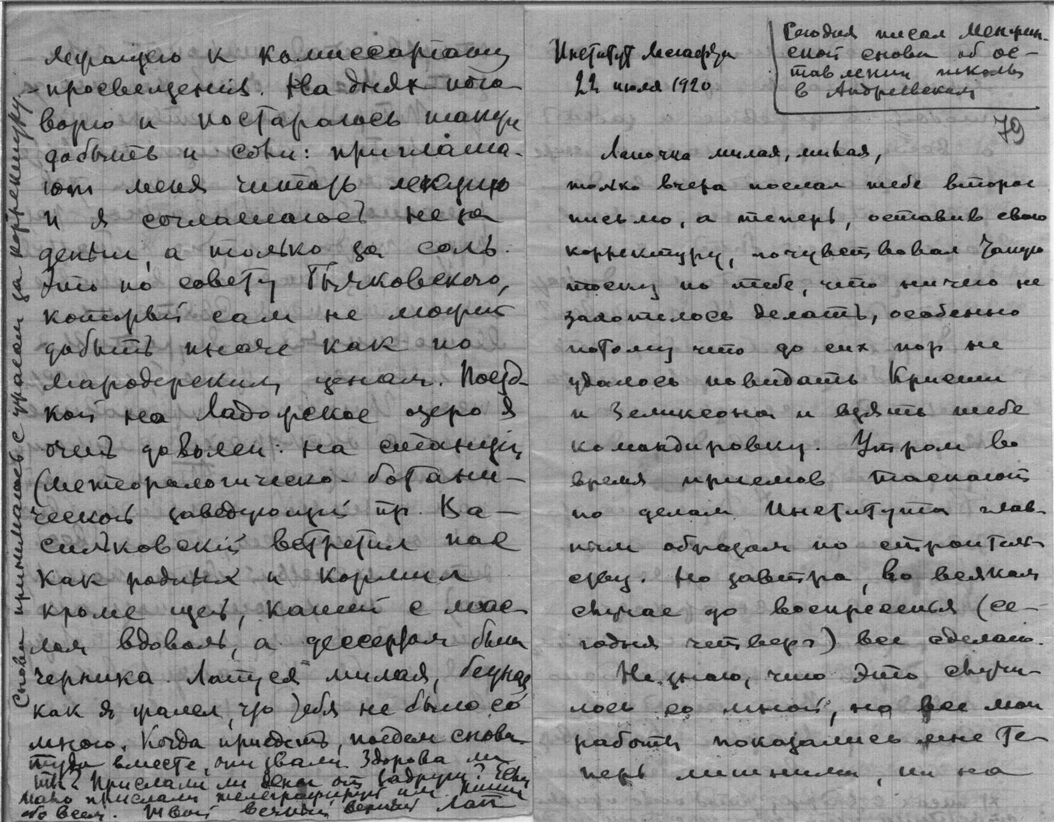 Институт Лесгафта
22 июля 1920
Сегодня писал Менжин-
ской снова об ос-
тавлении школы
в Андреевском
79
Лапочка милая, милая,
только вчера послал тебе второе
письмо, а теперь, оставив свою
корректуру, почувствовал такую
тоску по тебе, что ничего не
захотелось делать, особенно
потому что до сих пор не
удалось повидать Кристи
и Зеликсона и взять тебе
командировку. Утром во
время приемов таскают
по делам Института глав-
ным образом по строитель-
ству. Но завтра, во всяком
случае до воскресенья (се-
годня четверг) все сделаю.
Не знаю, что это случи-
лось со мной, но все мои
работы показались мне те-
перь лишними, ни на
лежащую к комиссариату
просвещения. На днях пого-
ворю и постараюсь такую
добыть и себе: приглаша-
ют меня читать лекцию
и я соглашаюсь не за
деньги, а только за соль.
Это по совету
который сам не может
добыть иначе как по
мародерским ценам. Поезд-
кой на Ладожское озеро я
очень доволен: на станции
(метеорологическо-ботани-
ческой заведующий пр. Ва-
сильковский встретил нас
как родных и кормил
кроме щей, кашей с мас-
лом вдоволь, а дессертом была
черника. Лапуся милая,
как я жалел, что тебя не было со
мною. Когда приедешь, поедем снова
туда вместе, они звали. Здорова ли
ты? Прислали ли деньги от Задруги? Если
мало прислали телеграфируй им. Пиши
обо всем. Твой вечный верный Лап
Снова принимаюсь с ужасом за корректуру.